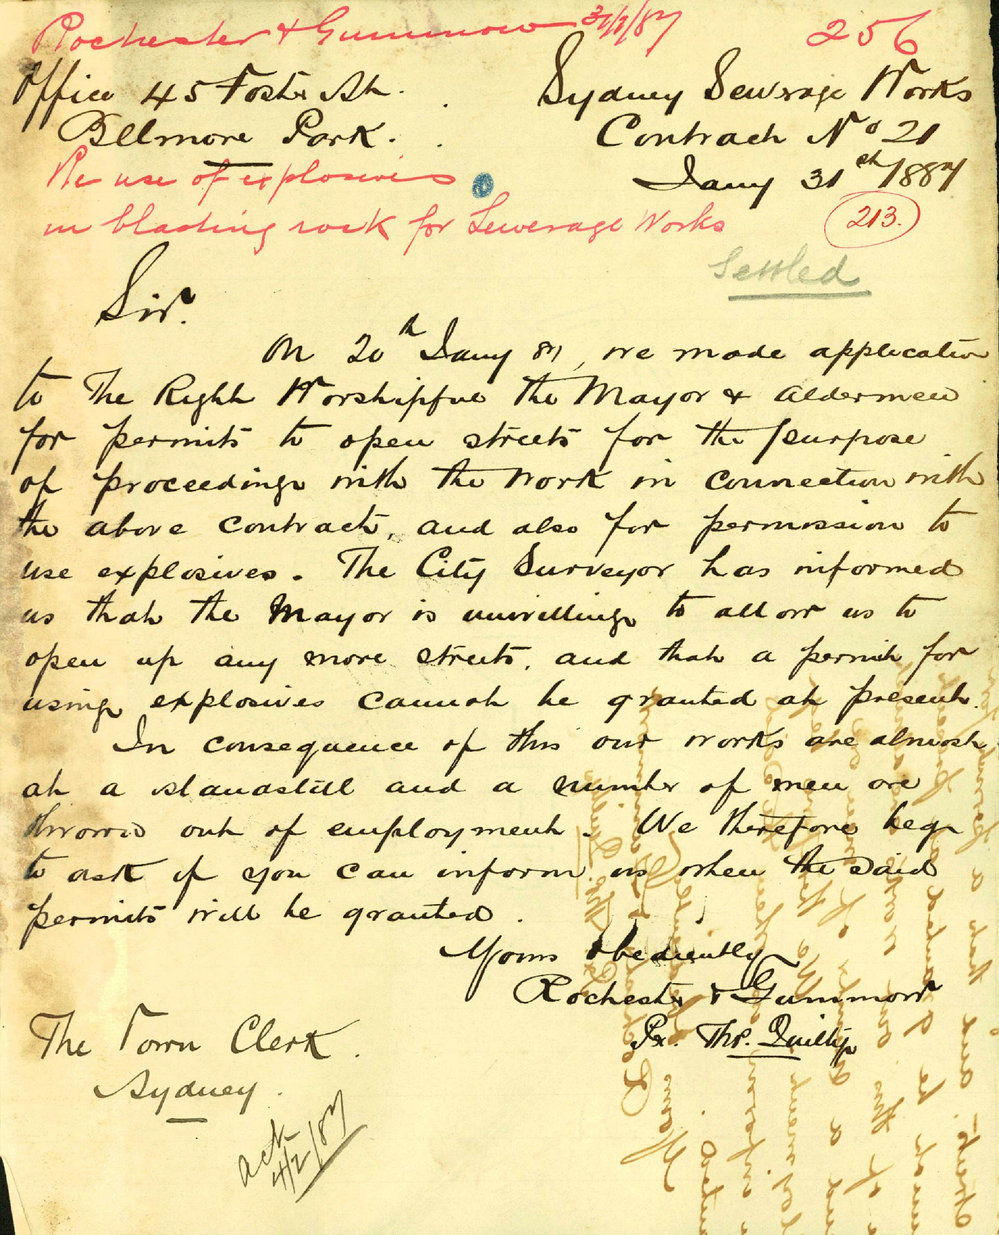 Rochester & Gummow 31/1/87
256
Office 45 Foster St.
Bellmore Park.
Sydney Sewerage Works
Contract No 21
Jany 31st /1887
Re use of explosives
in blasting rock for Sewerage Works
213.
Settled
Sir.
On 20th Jany 87, we made application
to The Right Worshipful the Mayor & Aldermen
for permits to open streets for the purpose
of proceeding with the work in connection with
the above contract, and also for permission to
use explosives. The City Surveyor has informed
us that the Mayor is unwilling to allow us to
open up any more streets, and that a permit for
using explosives cannot be granted at present.
In consequence of this our works are almost
at a standstill and a number of men are
thrown out of employment. We therefore beg
to ask if you can inform us when the said
permits will be granted.
Yours obediently
Rochester & Gummow
Pr. Thos. Quilty
The Town Clerk.
Sydney.
ack
4/2/87